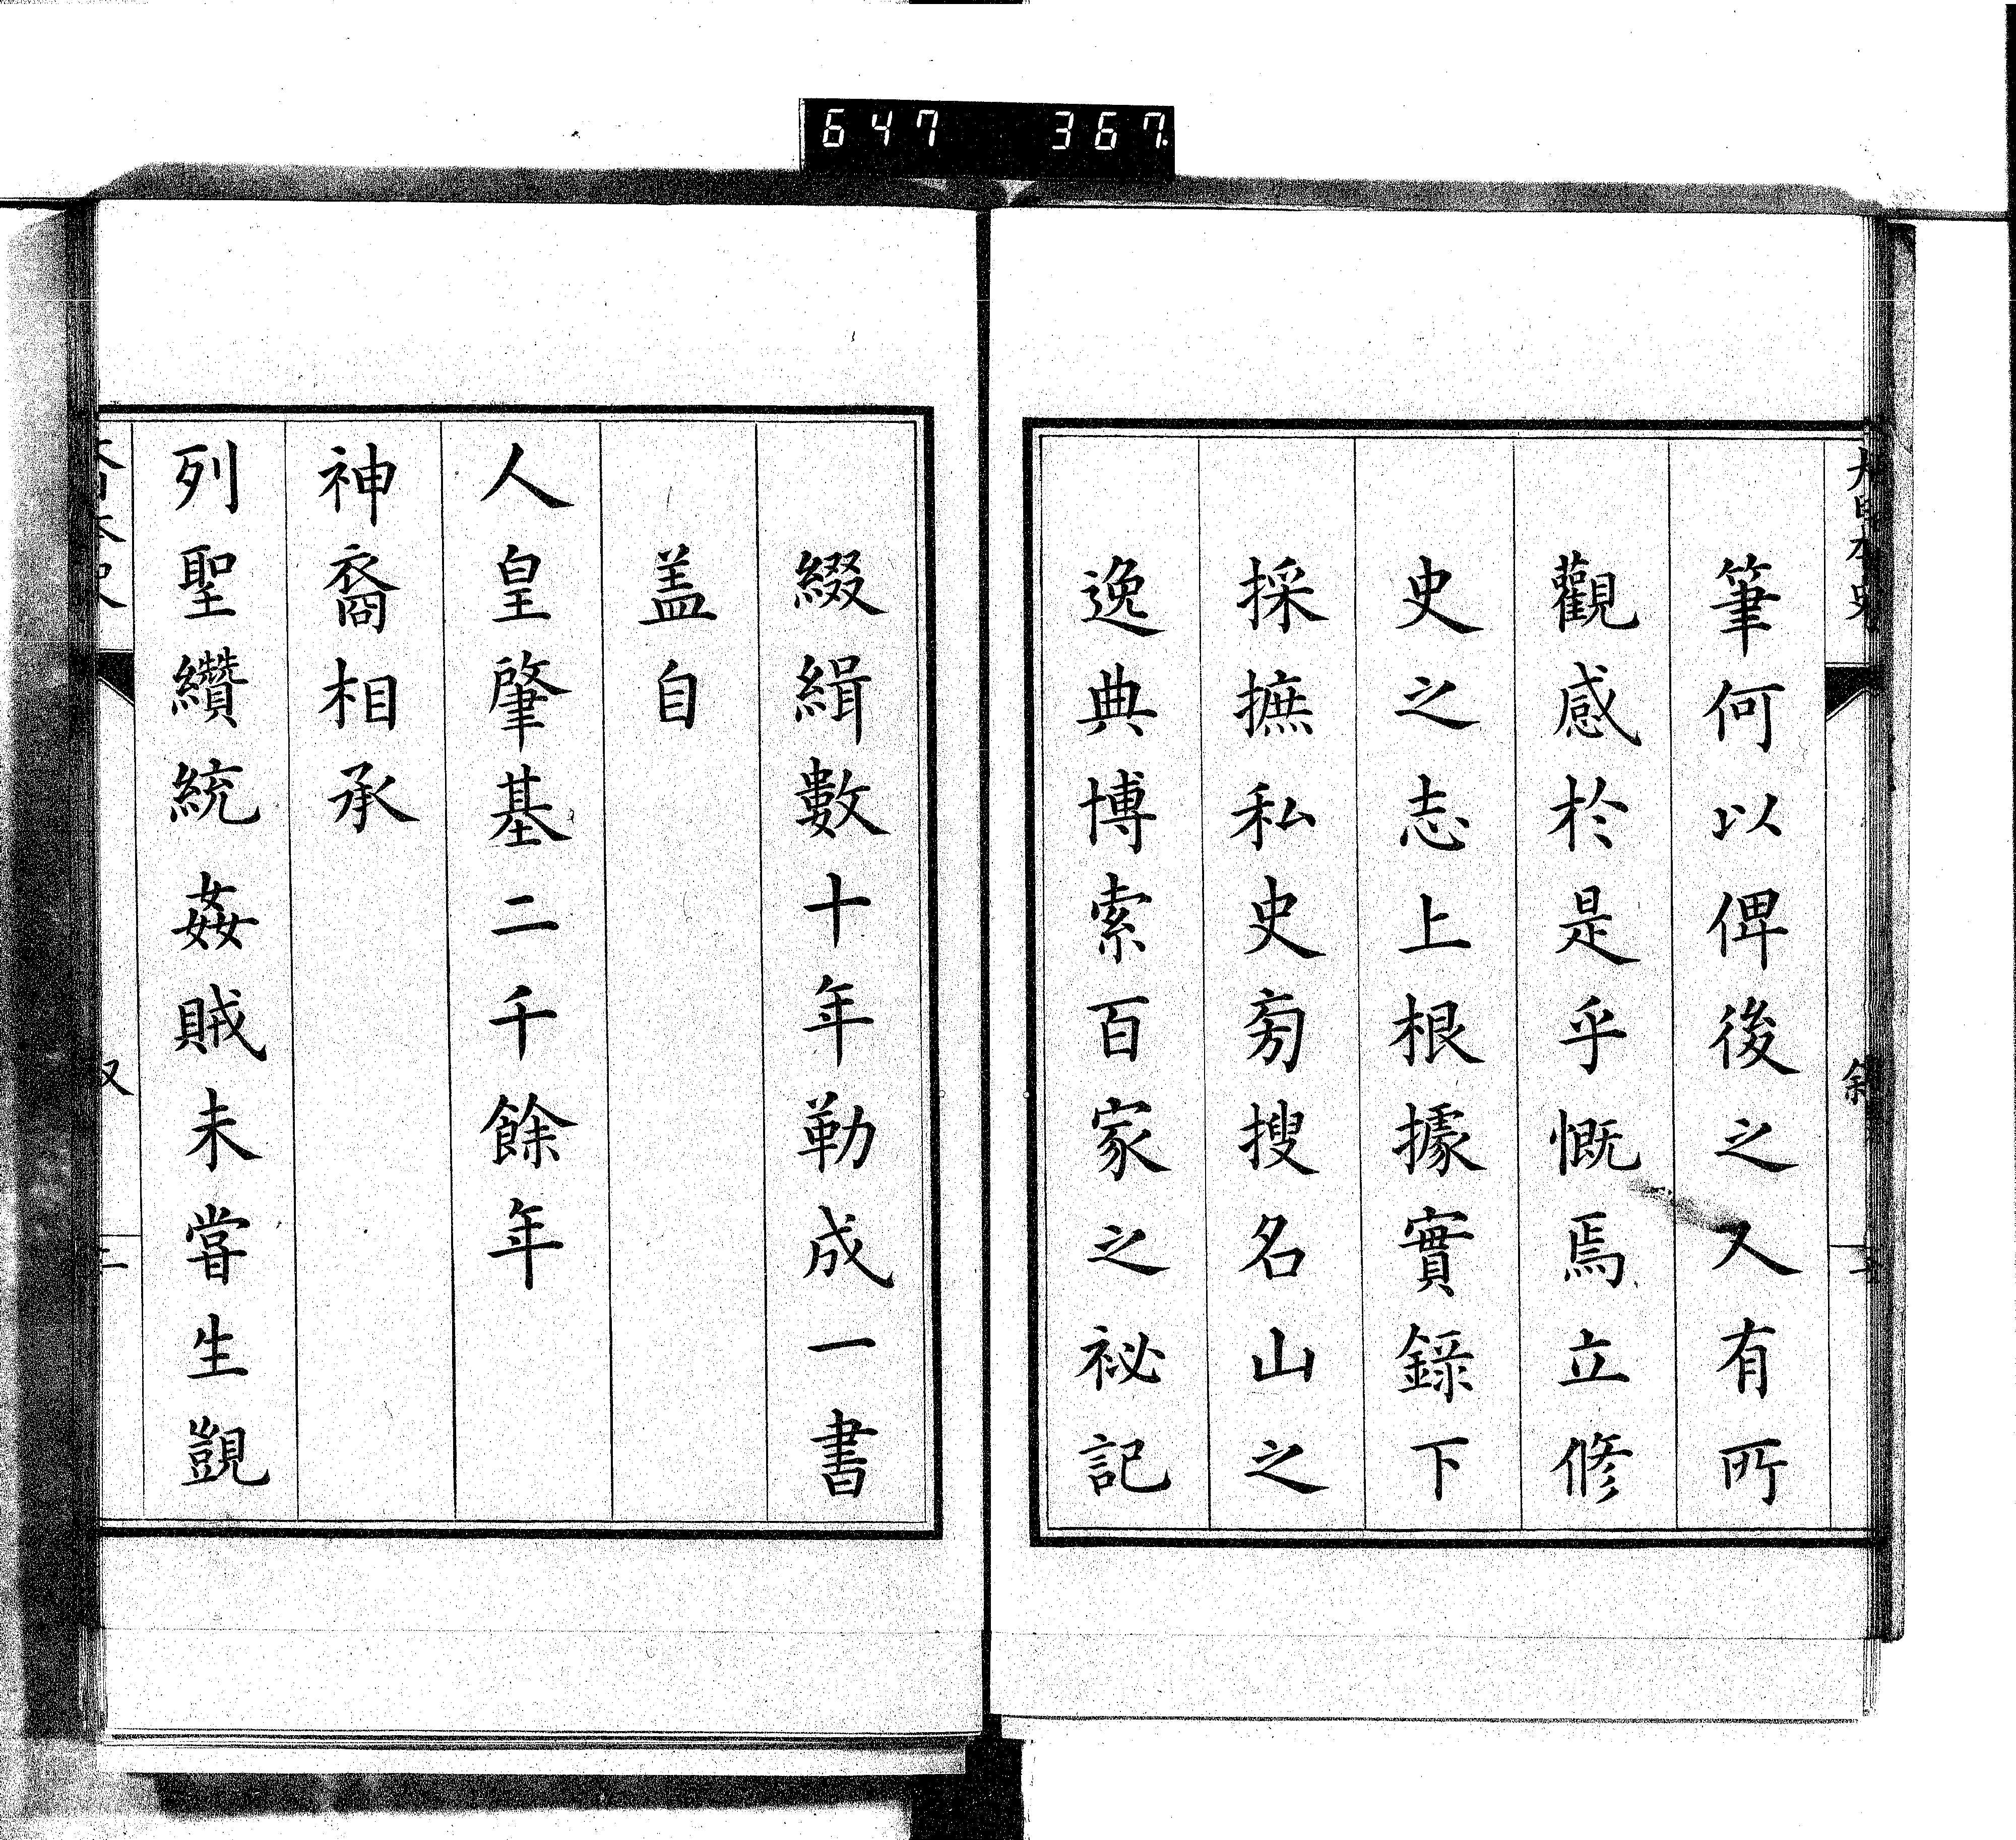 647 367.
大日本史 敘
筆何以俾後之人有所
觀感於是乎慨焉立修
史之志上根據實錄下
採摭私史旁搜名山之
逸典博索百家之祕記
綴緝數十年勒成一書
盖自
人皇肇基二千餘年
神裔相承
列聖纘統姦賊未嘗生覬